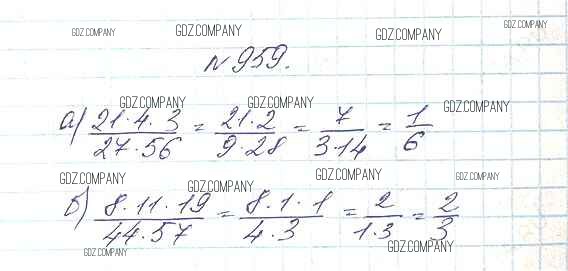 GDZ.COMPANY GDZ.COMPANY GDZ.COMPANY GDZ.COMPANY
№959.
GDZ.COMPANY GDZ.COMPANY GDZ.COMPANY
а) 21·4·3/27·56 = 21·2/9·28 = 7/3·14 = 1/6
GDZ.COMPANY GDZ.COMPANY GDZ.COMPANY GDZ.COMPANY
б) 8·11·19/44·57 = 8·1·1/4·3 = 2/1·3 = 2/3
GDZ.COMPANY GDZ.COMPANY